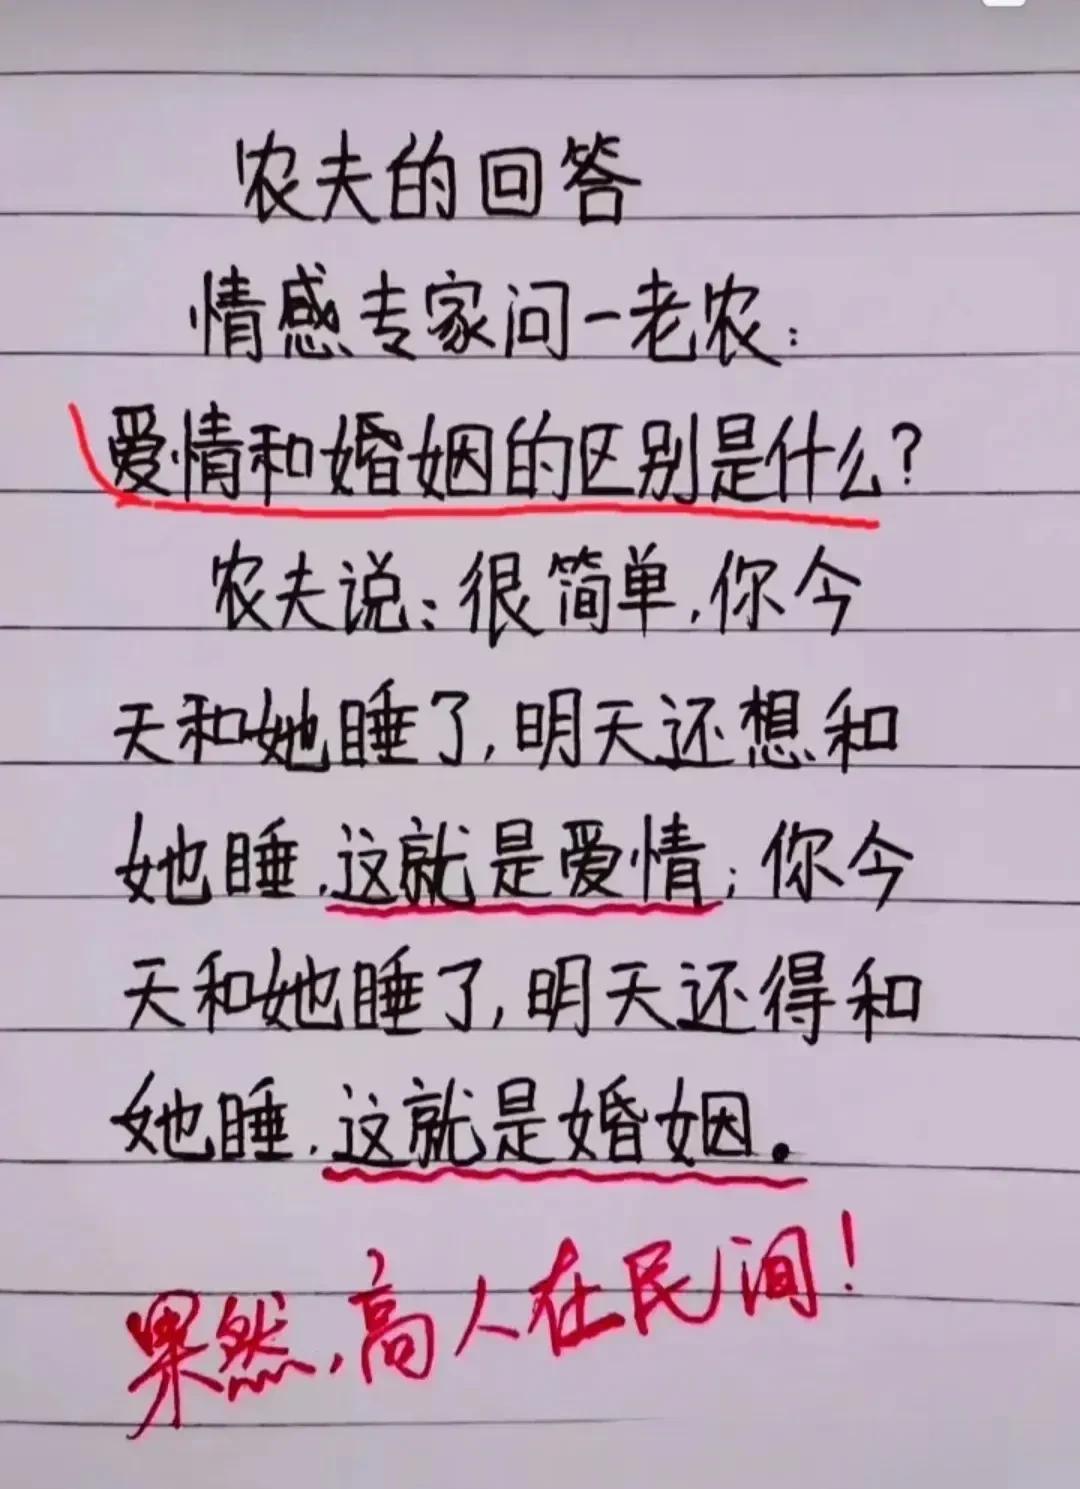 农夫的回答
情感专家问一老农:
爱情和婚姻的区别是什么?
农夫说:很简单,你今
天和她睡了,明天还想和
她睡,这就是爱情;你今
天和她睡了,明天还得和
她睡,这就是婚姻。
果然,高人在民间!